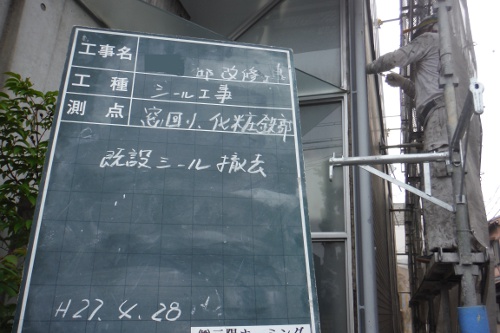 工事名 邸改修工事
工種 シール工事
測点 窓回り、化粧目地部
既設シール撤去
H27.4.28